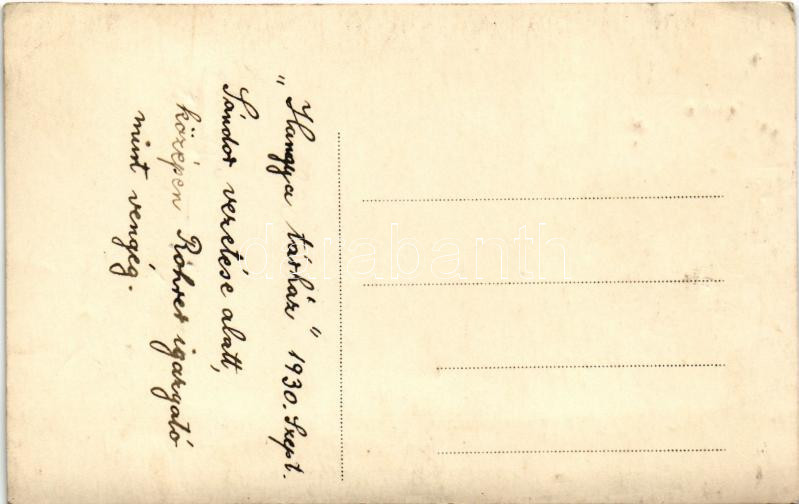 „Hangya tárház" 1930. Szept.
Sándor vezetése alatt,
középen Röhrer igazgató
mint vengég.
darabanth